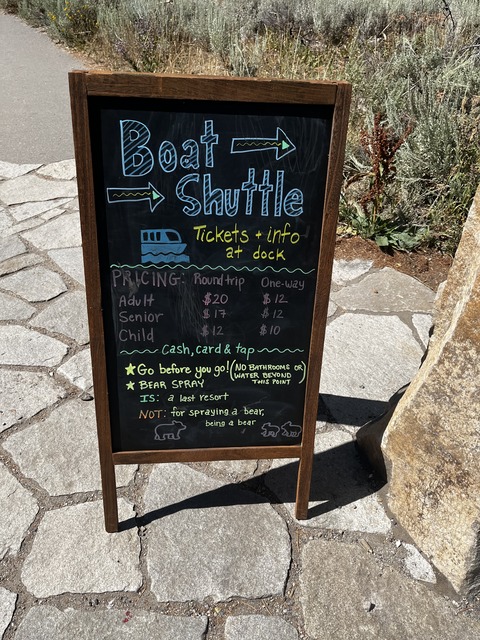 Boat
Shuttle
Tickets + info
at dock
PRICING: Roundtrip One-way
Adult $20 $12
Senior $17 $12
Child $12 $10
Cash, card & tap
Go before you go! (NO BATHROOMS OR
WATER BEYOND
THIS POINT)
BEAR SPRAY
IS: a last resort
NOT: for spraying a bear,
being a bear